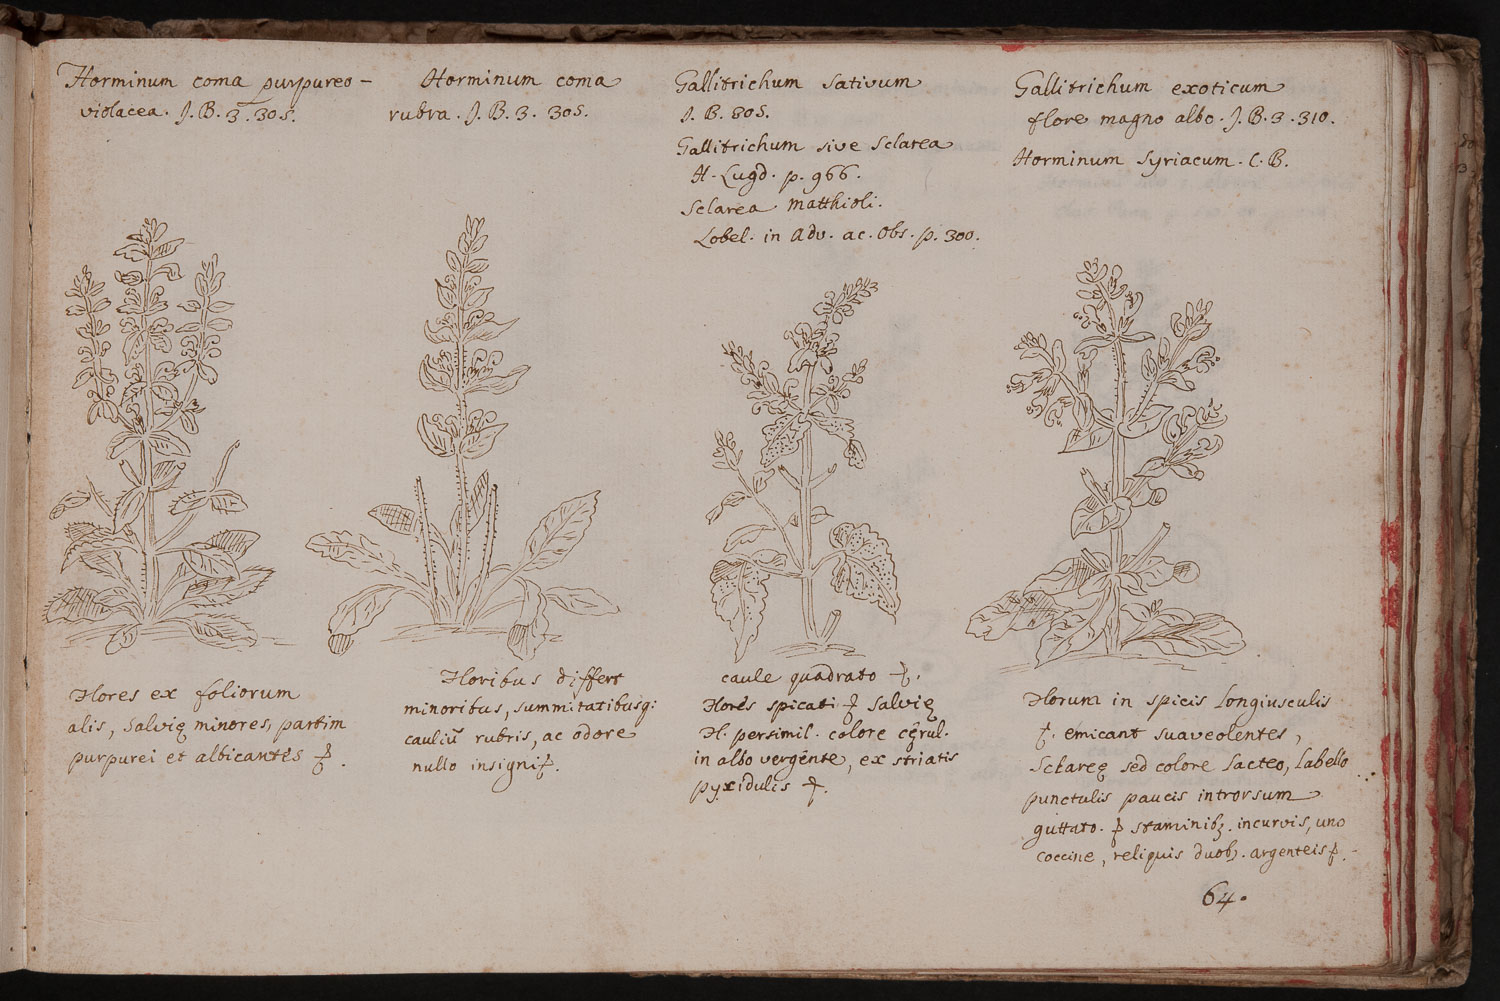 Horminum coma purpureo-
violacea. J.B.3.305.
Horminum coma
rubra. J.B.3. 305.
Gallitrichum sativum
J.B. 305.
Gallitrichum sive Sclarea
H. Lugd. p. 966.
Sclarea Matthioli.
Lobel. in Adv. ac. Obs. p. 300.
Gallitrichum exoticum
flore magno albo. J.B.3.310.
Horminum Syriacum. C.B.
Flores ex foliorum
alis, Salvię minores, partim
purpurei et albicantes
Floribus differt
minoribus, summitatibusq;
cauliū rubris, ac odore
nullo insigni
caule quadrato
Flores spicati Salvię
H. persimil. colore cęrul.
in albo vergente, ex striatis
pyxidulis
Florum in spicis longiusculis
emicant suaveolentes,
Sclareę sed colore lacteo, labello
punctulis paucis introrsum
guttato. staminibꝫ. incurvis, uno
coccine, reliquis duobꝫ. argenteis
64.